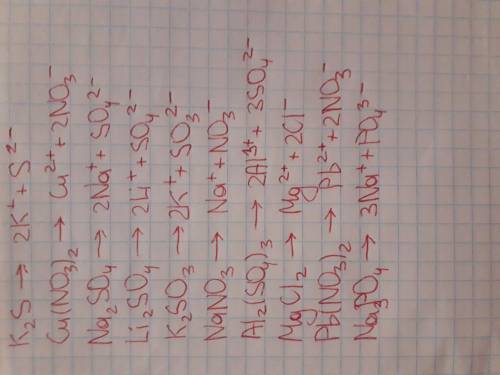 K₂S → 2K⁺ + S²⁻
Cu(NO₃)₂ → Cu²⁺ + 2NO₃⁻
Na₂SO₄ → 2Na⁺ + SO₄²⁻
Li₂SO₄ → 2Li⁺ + SO₄²⁻
K₂SO₃ → 2K⁺ + SO₃²⁻
NaNO₃ → Na⁺ + NO₃⁻
Al₂(SO₄)₃ → 2Al³⁺ + 3SO₄²⁻
MgCl₂ → Mg²⁺ + 2Cl⁻
Pb(NO₃)₂ → Pb²⁺ + 2NO₃⁻
Na₃PO₄ → 3Na⁺ + PO₄³⁻